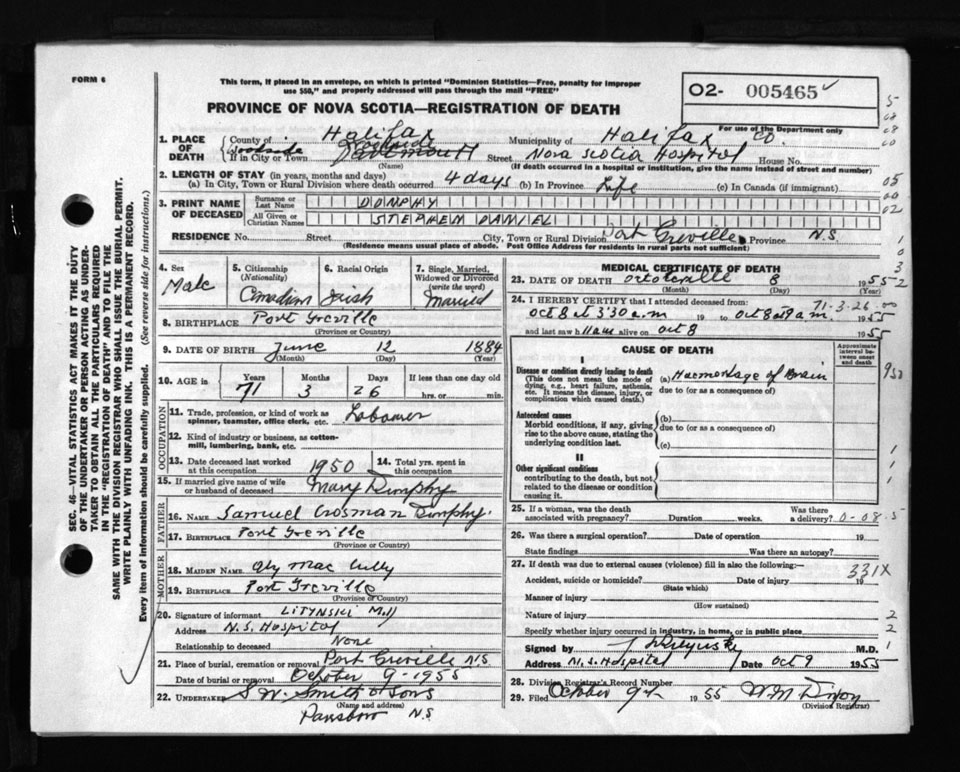 FORM 6
This form, if placed in an envelope, on which is printed "Dominion Statistics—Free, penalty for improper
use $50," and properly addressed will pass through the mail "FREE"
PROVINCE OF NOVA SCOTIA—REGISTRATION OF DEATH
O2- 005465
For use of the Department only
1. PLACE OF DEATH
County of Halifax
Municipality of Halifax Co.
Woodside
If in City or Town Dartmouth Street Nova Scotia Hospital House No.
(Name)
(If death occurred in a hospital or institution, give the name instead of street and number)
2. LENGTH OF STAY (in years, months and days)
(a) In City, Town or Rural Division where death occurred 4 days (b) In Province Life (c) In Canada (if immigrant)
3. PRINT NAME OF DECEASED
Surname or Last Name DONPHY
All Given or Christian Names STEPHEN DANIEL
RESIDENCE No. Street City, Town or Rural Division Port Greville Province N.S.
(Residence means usual place of abode. Post Office Address for residents in rural parts not sufficient)
4. Sex Male
5. Citizenship (Nationality) Canadian
6. Racial Origin Irish
7. Single, Married, Widowed or Divorced (write the word) Married
8. BIRTHPLACE Port Greville
(Province or Country)
9. DATE OF BIRTH June 12 1884
(Month) (Day) (Year)
10. AGE in Years 71 Months 3 Days 26 If less than one day old hrs. or min.
OCCUPATION
11. Trade, profession, or kind of work as spinner, teamster, office clerk, etc. Labourer
12. Kind of industry or business, as cotton-mill, lumbering, bank, etc.
13. Date deceased last worked at this occupation 1950
14. Total yrs. spent in this occupation
15. If married give name of wife or husband of deceased Mary Dunphy
FATHER
16. NAME Samuel Crosman Dunphy
17. BIRTHPLACE Port Greville
(Province or Country)
MOTHER
18. MAIDEN NAME Aly Mac Cully
19. BIRTHPLACE Port Greville
(Province or Country)
20. Signature of informant LITYNSKI M.D
Address N.S. Hospital
Relationship to deceased None
21. Place of burial, cremation or removal Port Greville N.S
Date of burial or removal October 9-1955
22. UNDERTAKER S W. Smith & Sons
(Name and address)
Parrsboro N.S
MEDICAL CERTIFICATE OF DEATH
23. DATE OF DEATH 8 1955
(Month) (Day) (Year)
71-3-26
24. I HEREBY CERTIFY that I attended deceased from:
Oct 8 at 3³30 a.m 19 to Oct 8 at 9 a.m. 1955
and last saw him alive on Oct 8 1955
CAUSE OF DEATH
Approximate interval between onset and death
I
Disease or condition directly leading to death
(This does not mean the mode of dying, e.g., heart failure, asthenia, etc. It means the disease, injury, or complication which caused death.)
(a) Haemorrage of Brain
due to (or as a consequence of)
Antecedent causes
Morbid conditions, if any, giving rise to the above cause, stating the underlying condition last.
(b)
due to (or as a consequence of)
(c)
II
Other significant conditions
contributing to the death, but not related to the disease or condition causing it.
25. If a woman, was the death associated with pregnancy? Duration weeks. Was there a delivery?
0-08-5
26. Was there a surgical operation? Date of operation 19
State findings Was there an autopsy?
27. If death was due to external causes (violence) fill in also the following:—
331X
Accident, suicide or homicide? Date of injury 19
(State which)
Manner of injury
(How sustained)
Nature of injury
Specify whether injury occurred in industry, in home, or in public place
Signed by J Litynski M.D.
Address N.S. Hospital Date Oct 9 1955
28. Division Registrar's Record Number
29. Filed October 9th 1955 W M Dixon
(Division Registrar)
SEC. 46—VITAL STATISTICS ACT MAKES IT THE DUTY
OF THE UNDERTAKER OR PERSON ACTING AS UNDER-
TAKER TO OBTAIN ALL THE PARTICULARS REQUIRED
IN THE "REGISTRATION OF DEATH" AND TO FILE THE
SAME WITH THE DIVISION REGISTRAR WHO SHALL ISSUE THE BURIAL PERMIT.
WRITE PLAINLY WITH UNFADING INK. THIS IS A PERMANENT RECORD.
Every item of information should be carefully supplied. (See reverse side for instructions.)